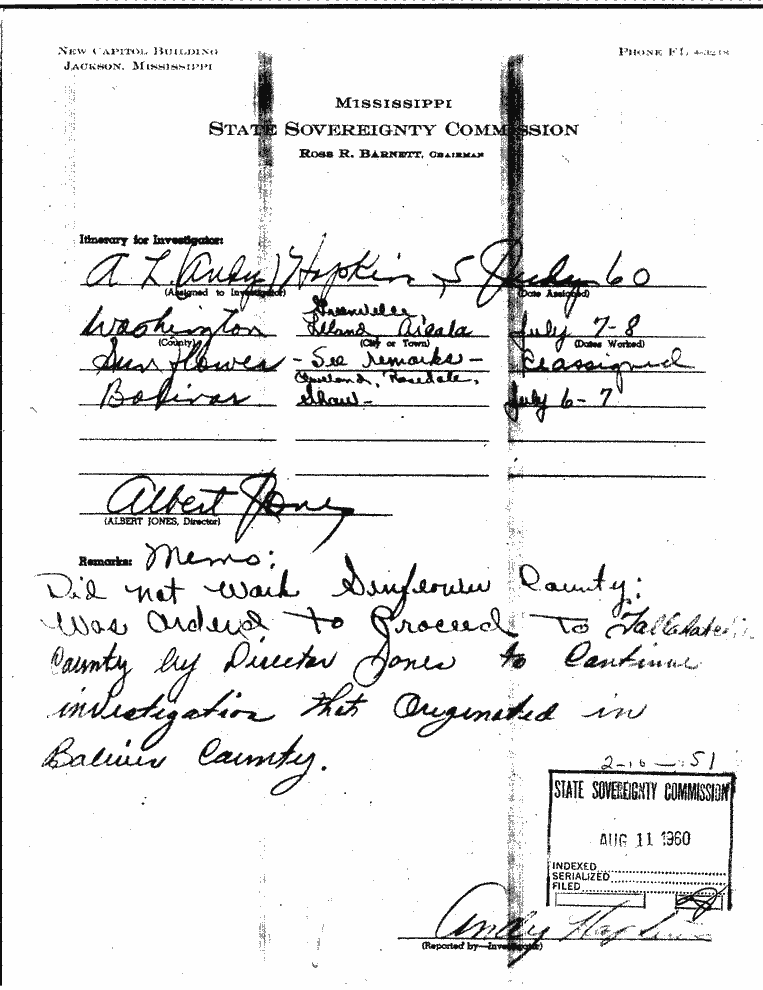 NEW CAPITOL BUILDING
JACKSON, MISSISSIPPI
PHONE FL 4-3218
MISSISSIPPI
STATE SOVEREIGNTY COMMISSION
ROSS R. BARNETT, CHAIRMAN
Itinerary for Investigator:
A L (Andy) Hopkins 5 July 60
(Assigned to Investigator) (Date Assigned)
Greenville
Washington Leland Arcola July 7-8
(County) (City or Town) (Dates Worked)
Sun flower - See remarks - Reassigned
Cleveland, Rosedale,
Bolivar Shaw- July 6-7
Albert Jones
(ALBERT JONES, Director)
Remarks: Memo:
Did not Work Sunflower County:
Was Ordered to Proceed To Tallahatchie
County by Director Jones to Continue
investigation that Originated in
Bolivar County.
STATE SOVEREIGNTY COMMISSION
AUG 11 1960
INDEXED
SERIALIZED
FILED
Andy Hopkins
(Reported by—Investigator)